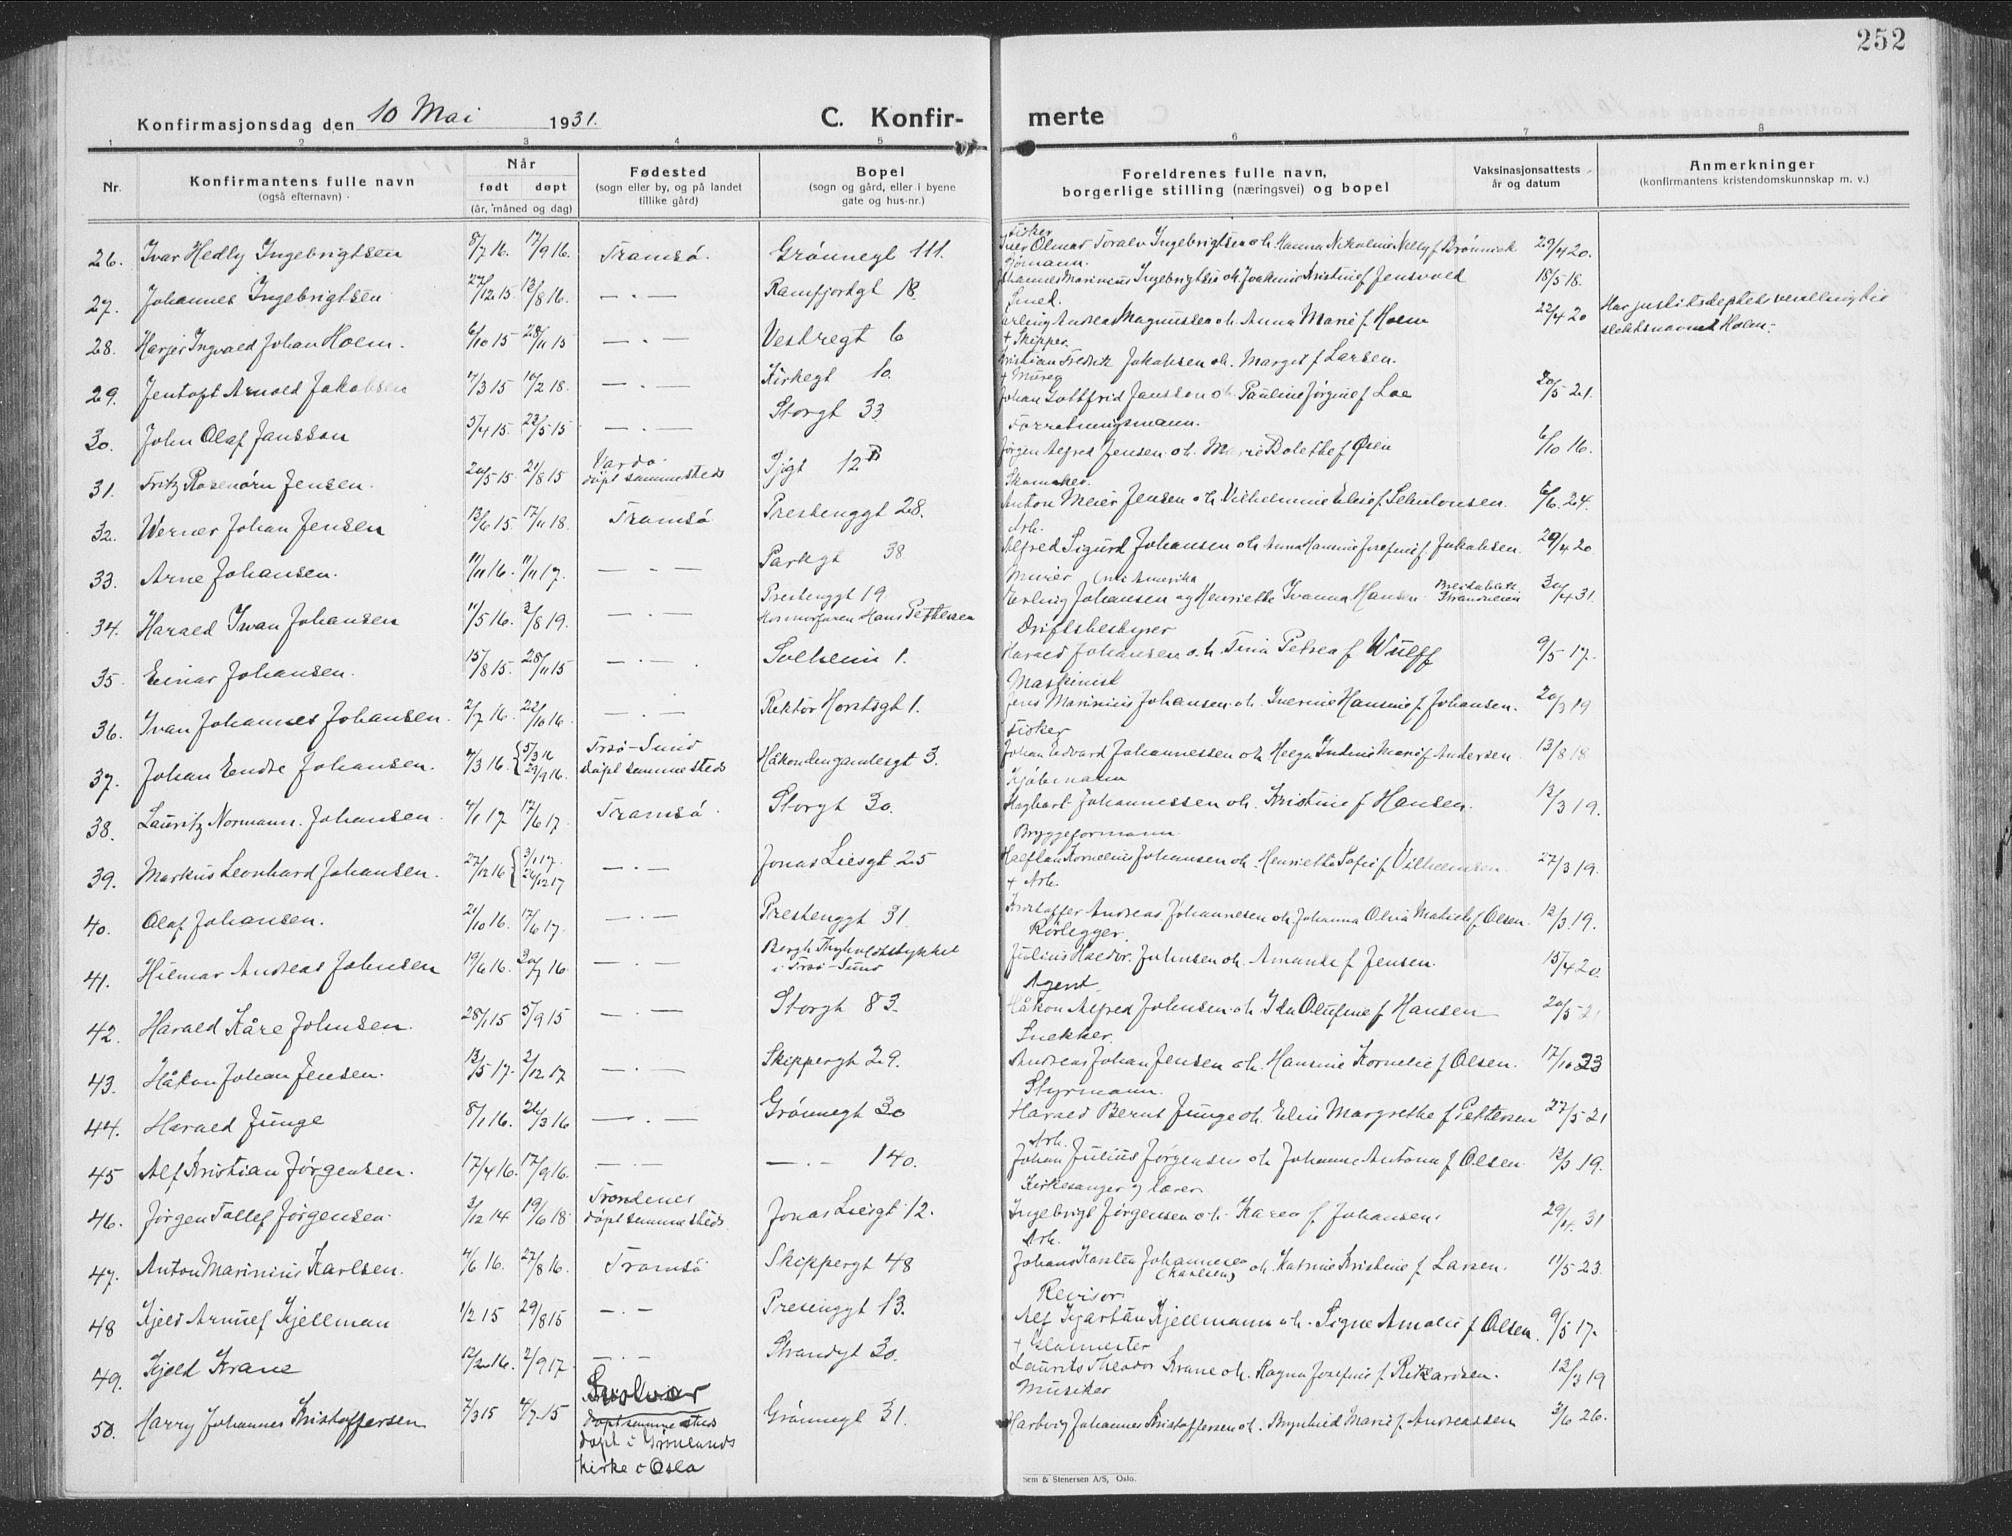 252
Konfirmasjonsdag den 10 Mai 1931.
C. Konfir-
merte
1 2 3 4 5 6 7 8
Nr.
Konfirmantens fulle navn
(også efternavn)
Når
født døpt
(år, måned og dag)
Fødested
(sogn eller by, og på landet
tillike gård)
Bopel
(sogn og gård, eller i byene
gate og hus-nr.)
Foreldrenes fulle navn,
borgerlige stilling (næringsvei) og bopel
Vaksinasjonsattests
år og datum
Anmerkninger
(konfirmantens kristendomskunnskap m. v.)
Fisker
26. Ivar Hedly Ingebrigtsen 8/7 16. 17/9 16. Tromsø. Grønnegt 111. Olmar Toralv Ingebrigtsen o h. Hanna Nikoline Nelly f. Brønnick 29/4 20.
27. Johannes Ingebrigtsen 27/12 15 13/8 16. — . — Ramfjordgt 18. Johannes Marinius Ingebrigtsen o h. Kristine f Jensvold 18/5 18.
28. Ingvald Johan Holm. 6/10 15 28/11 15 — . — Vestregt 6 Erling Andreas Magnussen o h. Anna Marie f. Holm 22/4 20 Har justitsdeptets
slektsnavnet Holm.
+ Skipper.
29. Jentoft Arnold Jakobsen 7/3 15 10/2 18. — . — Kirkegt 10. Kristian Fredrik Jakobsen o h. Margit f Larsen.
+ Murer
30. John Olaf Jansson 5/4 15. 23/5 15 — . — Storgt 33 Johan Gottfrid Jansson o h. Pauline Jørgine f Loe 20/5 21.
Forretningsmann.
31. Fritz Rosenørn Jensen. 20/5 15 21/8 15 Vardø. døpt sammesteds 12 B Jørgen Alfred Jensen o h. Marie Bolette f Øien 6/10 16.
Skomaker
32. Werner Johan Jensen 13/6 15 17/11 18. Tromsø Prestenggt 28. Anton Meier Jensen o h. Vilhelmine Elise f. 6/6. 24.
Arb.
33. Arne Johansen. 11/11 16. 11/11 17. — . — Parkgt 38 Alfred Sigurd Johansen o h. Anna Hansine Josefine f. Jakobsen. 29/4 20.
Murer (nu i Amerika
34. Harald Iwan Johansen 11/5 16. 3/8 19. — . — Prestenggt 19 Hos morfaren Hans Pettersen Erling Johansen og Henriette Ivanna Hansen Strandveien 30/4 31.
Driftsbestyrer
35. Einar Johansen. 15/8 15. 28/11 15 — . — Solheim 1. Harald Johansen o. h. Tina Petrea f Wulff 9/5 17.
Maskinist
36. Ivan Johannes Johansen. 2/7 16. 22/10 16 — . — Rektor Horstsgt 1. Jens Marinius Johansen. o h. Iverine Hansine f. Johansen. 20/3 19
Fisker
37. Johan Endre Johansen. 7/3 16. {5/3 16 29/9 16. Trsø-Sund døpt sammesteds Håkon den gamlesgt 3. Johan Edvard Johannessen o h. Helga Marie f Andersen 13/8 18
Kjøbmann
38. Lauritz Normann. Johansen. 4/1 17 17/6 17. Tromsø. Storgt 30. Hagbart Johannessen o h. Kristine f Hansen. 12/3 19.
Bryggeformann
39. Markus Leonhard Johansen. 27/12 16 {3/1 17. 26/12 17 — . — Jonas Liesgt 25 Halfdan Kornelius Johansen o h. Henriette Sofie f. Vilhelmsen 27/3 19.
+ Arb.
40. Olaf Johansen. 21/10 16. 17/6 17. — . — Prestenggt 31 Kristoffer Andreas Johannesen o h. Johanna Olria Matilde f Olsen. 12/3 19.
Rørlegger.
41. Hilmar Andreas Johnsen 19/6 16. 30/7 16. — . — i Trsø-Sund Julius Haldor. Johnsen o h. Amanda f Jensen. 15/4 20.
Agent
42. Harald Kåre Johnsen. 28/1 15 5/9 15 — . — Storgt 83. Håkon Alfred Johnsen. o h. Ida Olufine f Hansen 20/5 21
Snekker.
43. Håkon Johan Jensen. 13/5 17. 2/12 17 — . — Skippergt 29. Andreas Johan Jensen o h. Hansine Kornelie f Olsen. 17/10 23
Styrmann.
44. Harald Junge 8/1 16. 26/3 16 — . — Grønnegt 30 Harald Bernt Junge o h. Elin Margrethe f Pettersen 27/5 21
Arb.
45 Alf Kristian Jørgensen. 17/4 16. 17/9 16. — . — — . — 140. Johan Julius Jørgensen o h. Johanne Antona f Olsen 13/3 19.
Kirkesanger og lærer
46. Jørgen Tollef Jørgensen. 3/12 14 19/6 18. Trondenes døpt sammesteds Jonas Liesgt 12. Ingebrigt Jørgensen o h. Karen f Johansen. 29/4. 31
Arb.
47. Anton Marinius Karlsen. 4/6 16. 27/8 16. Tromsø Skippergt 48 Johans Karsten Johannesen (Karlsen) o h. Katrine Kristine f Larsen. 11/5 23.
Revisor
48 Kjeld Arnulf Kjellman 1/2 15 29/8 15 — . — Presenggt 13. Alf Kjartan Kjellmann o h. Signe Amalie f Olsen. 9/5 17.
+ Glarmester
49. Kjeld Krane 12/2 16. 2/9 17. — . — Strandgt 30. Laurits Theodor Krane o h. Ragna Josefine f. Rikardsen. 12/3 19
Musiker
50. Harry Johannes Kristoffersen 7/3 15 4/7. 15 Svolvær døpt sammesteds døpt i Grønlands kirke i Oslo Grønnegt 31. Hartvig Johannes Kristoffersen o h. Brynhild Marie f. Andreassen 3/6 26.
Sem & Stenersen A/S, Oslo.